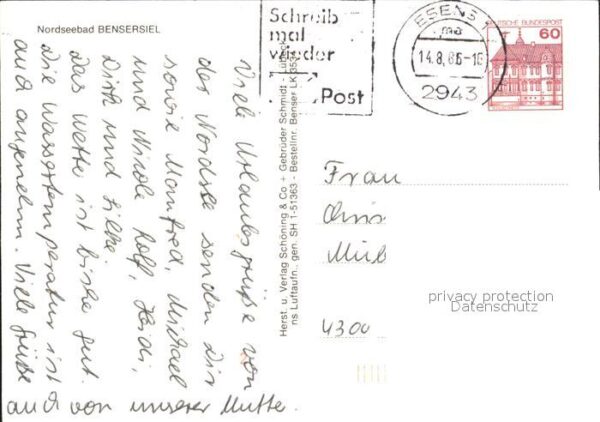 Nordseebad BENSERSIEL
Viele Urlaubsgrüße von
der Nordsee senden Dir
sowie Manfred, Michael
und Nicole Rolf, Heidi,
Dirk und Silke.
Das Wetter ist bisher gut.
Die Wassertemperatur ist
auch angenehm. Viele Grüße
auch von unserer Mutter.
Herst. u. Verlag Schöning & Co + Gebrüder Schmidt
ns Luftaufn. gen. SH 1-51363 - Bestellnr. Benser LK
Schreib
mal
wieder
Post
ESENS
ma
14.8.86-16
2943
DEUTSCHE BUNDESPOST
60
Frau
4300
privacy protection
Datenschutz